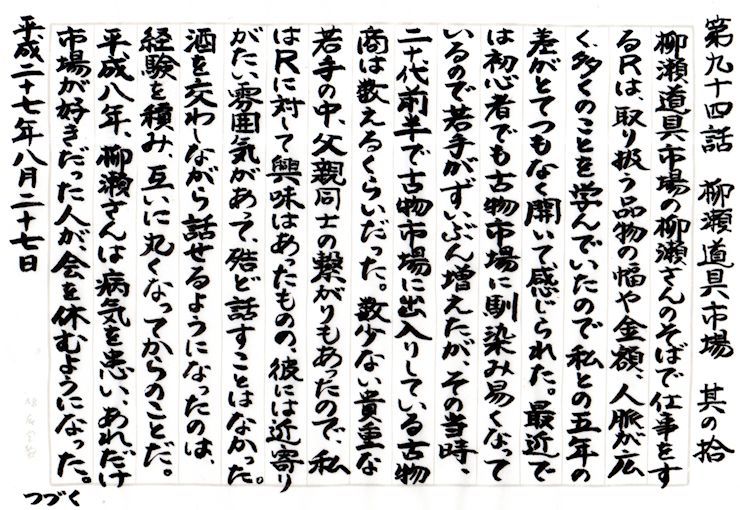 第九十四話　柳瀬道具市場　其の拾
柳瀬道具市場の柳瀬さんのそばで仕事をす
るRは、取り扱う品物の幅や金額、人脈が広
く、多くのことを学んでいたので私との五年の
差がとてつもなく開いて感じられた。最近で
は初心者でも古物市場に馴染み易くなって
いるので若手がずいぶん増えたが、その当時、
二十代前半で古物市場に出入りしている古物
商は数えるくらいだった。数少ない貴重な
若手の中、父親同士の繋がりもあったので、私
はRに対して興味はあったものの、彼には近寄り
がたい雰囲気があって、殆ど話すことはなかった。
酒を交わしながら話せるようになったのは、
経験を積み、互いに丸くなってからのことだ。
平成八年、柳瀬さんは病気を患い、あれだけ
市場が好きだった人が、会を休むようになった。
平成二十七年八月二十七日
つづく